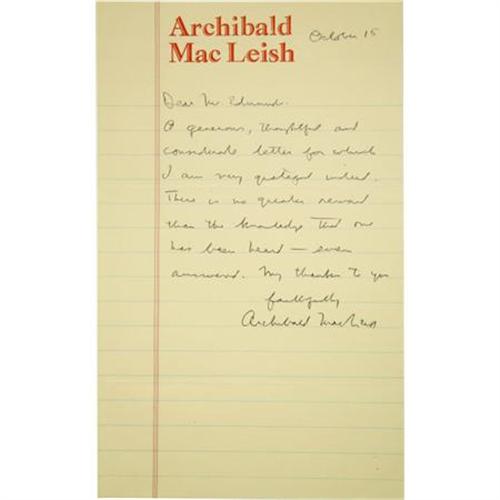 Archibald
Mac Leish
October 15
Dear Mr. Edmund.
A generous, thoughtful and
considerate letter for which
I am very grateful indeed.
There is no greater reward
than the knowledge that one
has been heard — even
answered. My thanks to you
faithfully
Archibald MacLeish